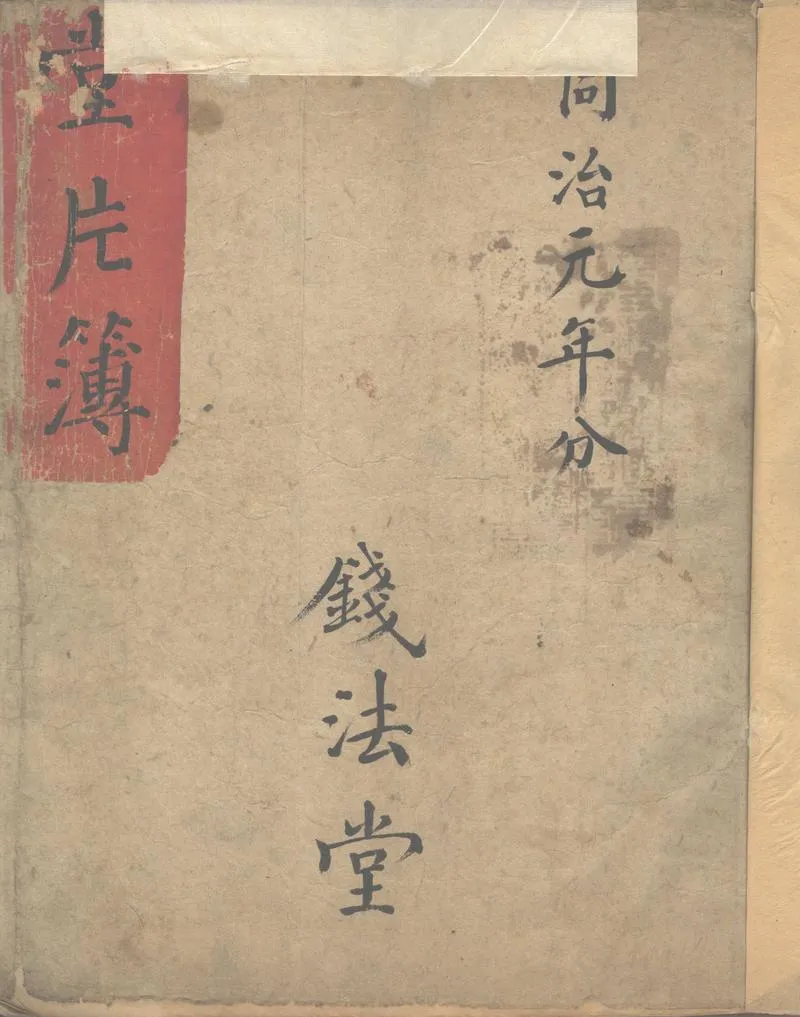 同治元年分
錢法堂
堂片簿